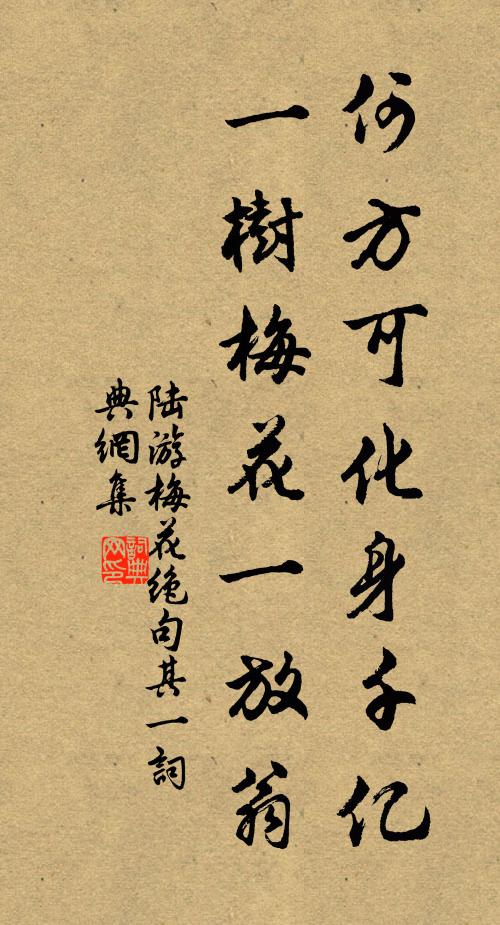 何方可化身千亿
一樹梅花一放翁
陆游梅花绝句其一詞
典網集
詞典
网印